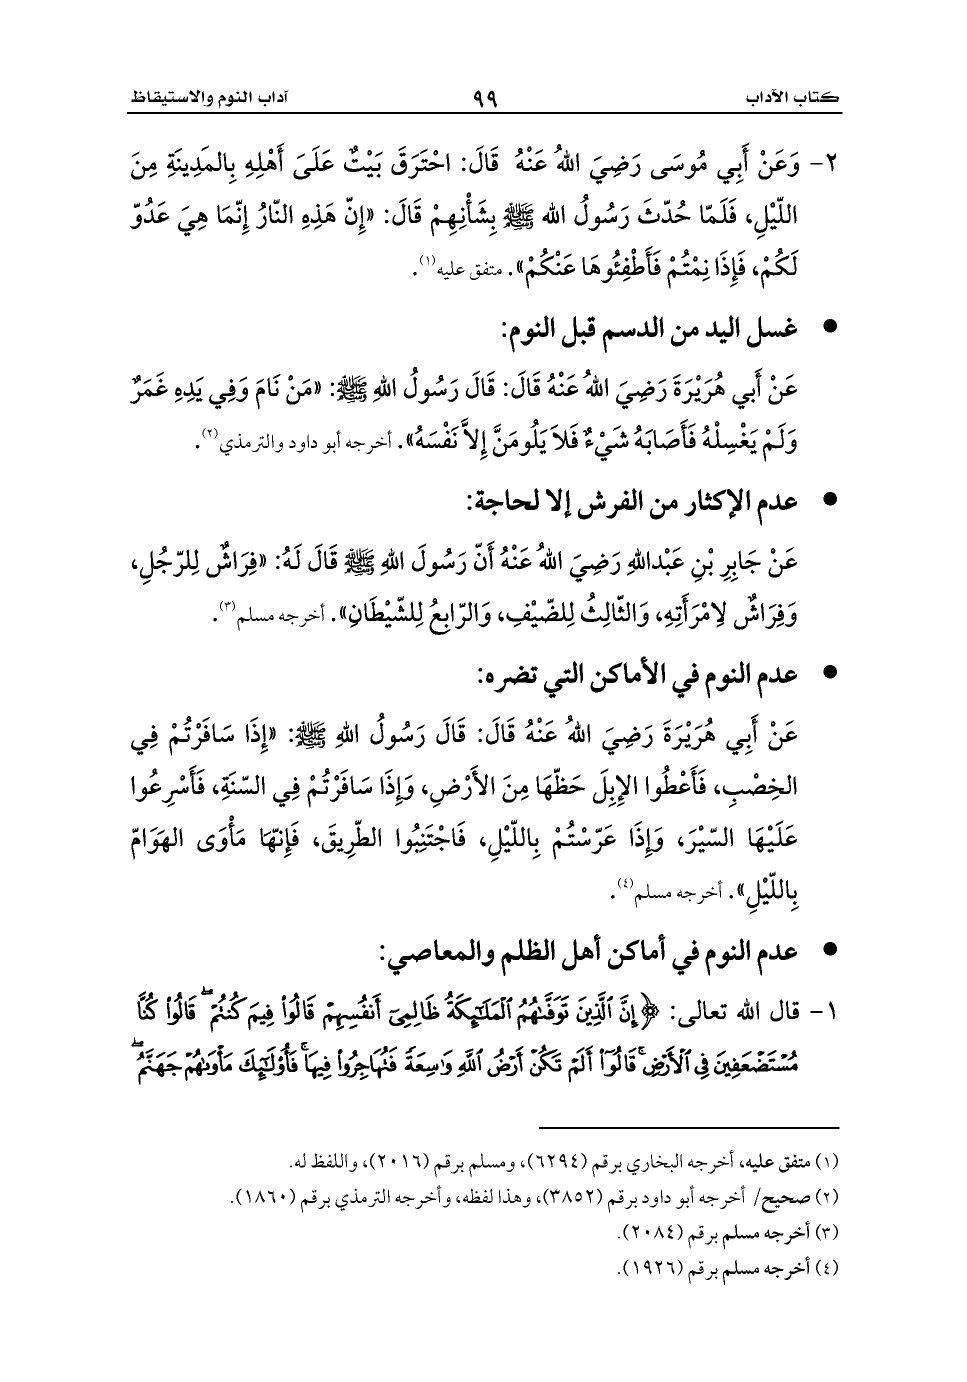 كتاب الآداب ٩٩ آداب النوم والاستيقاظ
٢- وَعَنْ أَبِي مُوسَى رَضِيَ اللهُ عَنْهُ قَالَ: احْتَرَقَ بَيْتٌ عَلَىَ أَهْلِهِ بِالمَدِينَةِ مِنَ
اللّيْلِ، فَلَمّا حُدّثَ رَسُولُ الله ﷺ بِشَأْنِهِمْ قَالَ: «إِنّ هَذِهِ النّارُ إِنّمَا هِيَ عَدُوّ
لَكُمْ، فَإِذَا نِمْتُمْ فَأَطْفِئُوهَا عَنْكُمْ». متفق عليه(١).
● غسل اليد من الدسم قبل النوم:
عَنْ أَبي هُرَيْرَةَ رَضِيَ اللهُ عَنْهُ قَالَ: قَالَ رَسُولُ اللهِ ﷺ: «مَنْ نَامَ وَفِي يَدِهِ غَمَرٌ
وَلَمْ يَغْسِلْهُ فَأَصَابَهُ شَيْءٌ فَلاَ يَلُومَنَّ إِلاَّ نَفْسَهُ». أخرجه أبو داود والترمذي(٢).
● عدم الإكثار من الفرش إلا لحاجة:
عَنْ جَابِرِ بْنِ عَبْدِاللهِ رَضِيَ اللهُ عَنْهُ أَنّ رَسُولَ اللهِ ﷺ قَالَ لَهُ: «فِرَاشٌ لِلرّجُلِ،
وَفِرَاشٌ لاِمْرَأَتِهِ، وَالثّالِثُ لِلضّيْفِ، وَالرّابِعُ لِلشّيْطَانِ». أخرجه مسلم(٣).
● عدم النوم في الأماكن التي تضره:
عَنْ أَبِي هُرَيْرَةَ رَضِيَ اللهُ عَنْهُ قَالَ: قَالَ رَسُولُ اللهِ ﷺ: «إِذَا سَافَرْتُمْ فِي
الخِصْبِ، فَأَعْطُوا الإِبِلَ حَظّهَا مِنَ الأَرْضِ، وَإِذَا سَافَرْتُمْ فِي السّنَةِ، فَأَسْرِعُوا
عَلَيْهَا السّيْرَ، وَإِذَا عَرّسْتُمْ بِاللّيْلِ، فَاجْتَنِبُوا الطّرِيقَ، فَإِنّهَا مَأْوَى الهَوَامّ
بِاللّيْلِ». أخرجه مسلم(٤).
● عدم النوم في أماكن أهل الظلم والمعاصي:
١- قال الله تعالى: ﴿إِنَّ ٱلَّذِينَ تَوَفَّىٰهُمُ ٱلْمَلَٰٓئِكَةُ ظَالِمِىٓ أَنفُسِهِمْ قَالُوا۟ فِيمَ كُنتُمْ ۖ قَالُوا۟ كُنَّا
مُسْتَضْعَفِينَ فِى ٱلْأَرْضِ ۚ قَالُوٓا۟ أَلَمْ تَكُنْ أَرْضُ ٱللَّهِ وَٰسِعَةً فَتُهَاجِرُوا۟ فِيهَا ۚ فَأُو۟لَٰٓئِكَ مَأْوَىٰهُمْ جَهَنَّمُ ۖ
(١) متفق عليه، أخرجه البخاري برقم (٦٢٩٤)، ومسلم برقم (٢٠١٦)، واللفظ له.
(٢) صحيح/ أخرجه أبو داود برقم (٣٨٥٢)، وهذا لفظه، وأخرجه الترمذي برقم (١٨٦٠).
(٣) أخرجه مسلم برقم (٢٠٨٤).
(٤) أخرجه مسلم برقم (١٩٢٦).